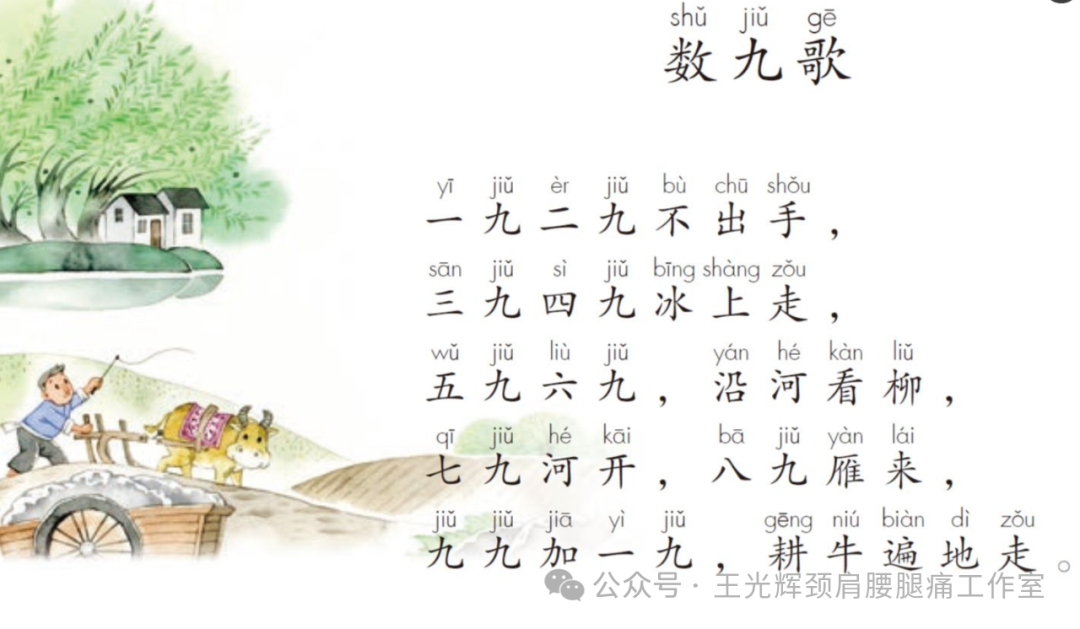 shǔ jiǔ gē
数九歌
yī jiǔ èr jiǔ bù chū shǒu
一九二九不出手，
sān jiǔ sì jiǔ bīng shàng zǒu
三九四九冰上走，
wǔ jiǔ liù jiǔ yán hé kàn liǔ
五九六九，沿河看柳，
qī jiǔ hé kāi bā jiǔ yàn lái
七九河开，八九雁来，
jiǔ jiǔ jiā yì jiǔ gēng niú biàn dì zǒu
九九加一九，耕牛遍地走。
公众号·王光辉颈肩腰腿痛工作室